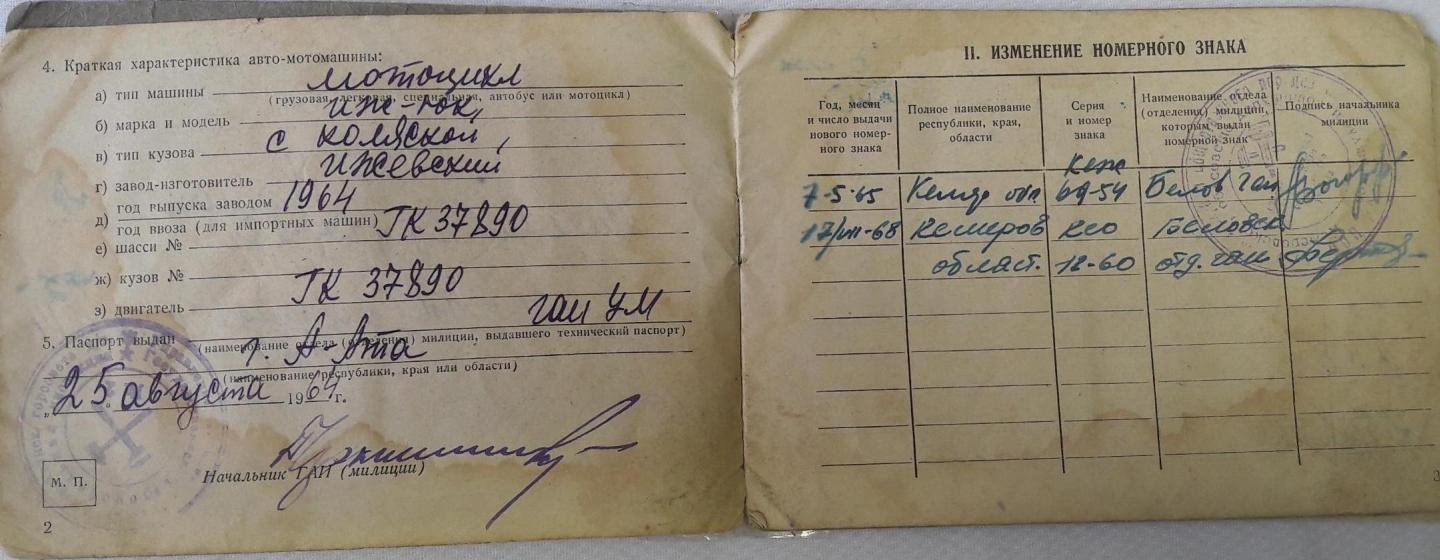 4. Краткая характеристика авто-мотомашины:
а) тип машины мотоцикл
(грузовая, легковая, специальная, автобус или мотоцикл)
б) марка и модель
в) тип кузова с коляской,
г) завод-изготовитель Ижевский
д) год выпуска заводом 1964
год ввоза (для импортных машин)
е) шасси № ГК 37890
ж) кузов №
з) двигатель ГК 37890
5. Паспорт выдан ГАИ УМ
(наименование отдела (отделения) милиции, выдавшего технический паспорт)
г. А-Ата
(наименование республики, края или области)
„25„ августа 1964 г.
Начальник ГАИ (милиции)
М. П.
2
II. ИЗМЕНЕНИЕ НОМЕРНОГО ЗНАКА
Год, месяц и число выдачи нового номерного знака
Полное наименование республики, края, области
Серия и номер знака
Наименование отдела (отделения) милиции, которым выдан номерной знак
Подпись начальника милиции
7-5-65 обл 69-54 Белов гаи
17/VIII-68 Кемеров кео Беловск
област. 18-60 отд. гаи
3